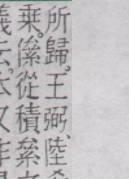 所歸。王弼、陸
乘。傫從積、絫
義云。本又作